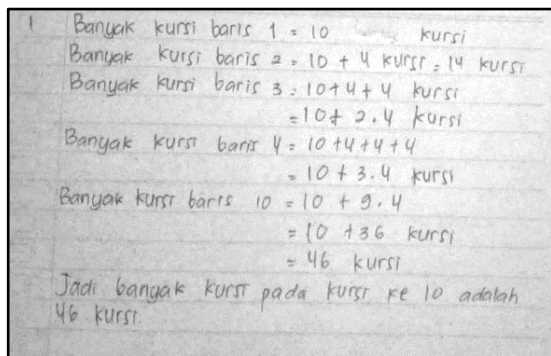 1 Banyak kursi baris 1 = 10 kursi
Banyak kursi baris 2 = 10 + 4 kursi = 14 kursi
Banyak kursi baris 3 = 10 + 4 + 4 kursi
= 10 + 2.4 kursi
Banyak kursi baris 4 = 10 + 4 + 4 + 4
= 10 + 3.4 kursi
Banyak kursi baris 10 = 10 + 9.4
= 10 + 36 kursi
= 46 kursi
Jadi banyak kursi pada kursi ke 10 adalah
46 kursi.